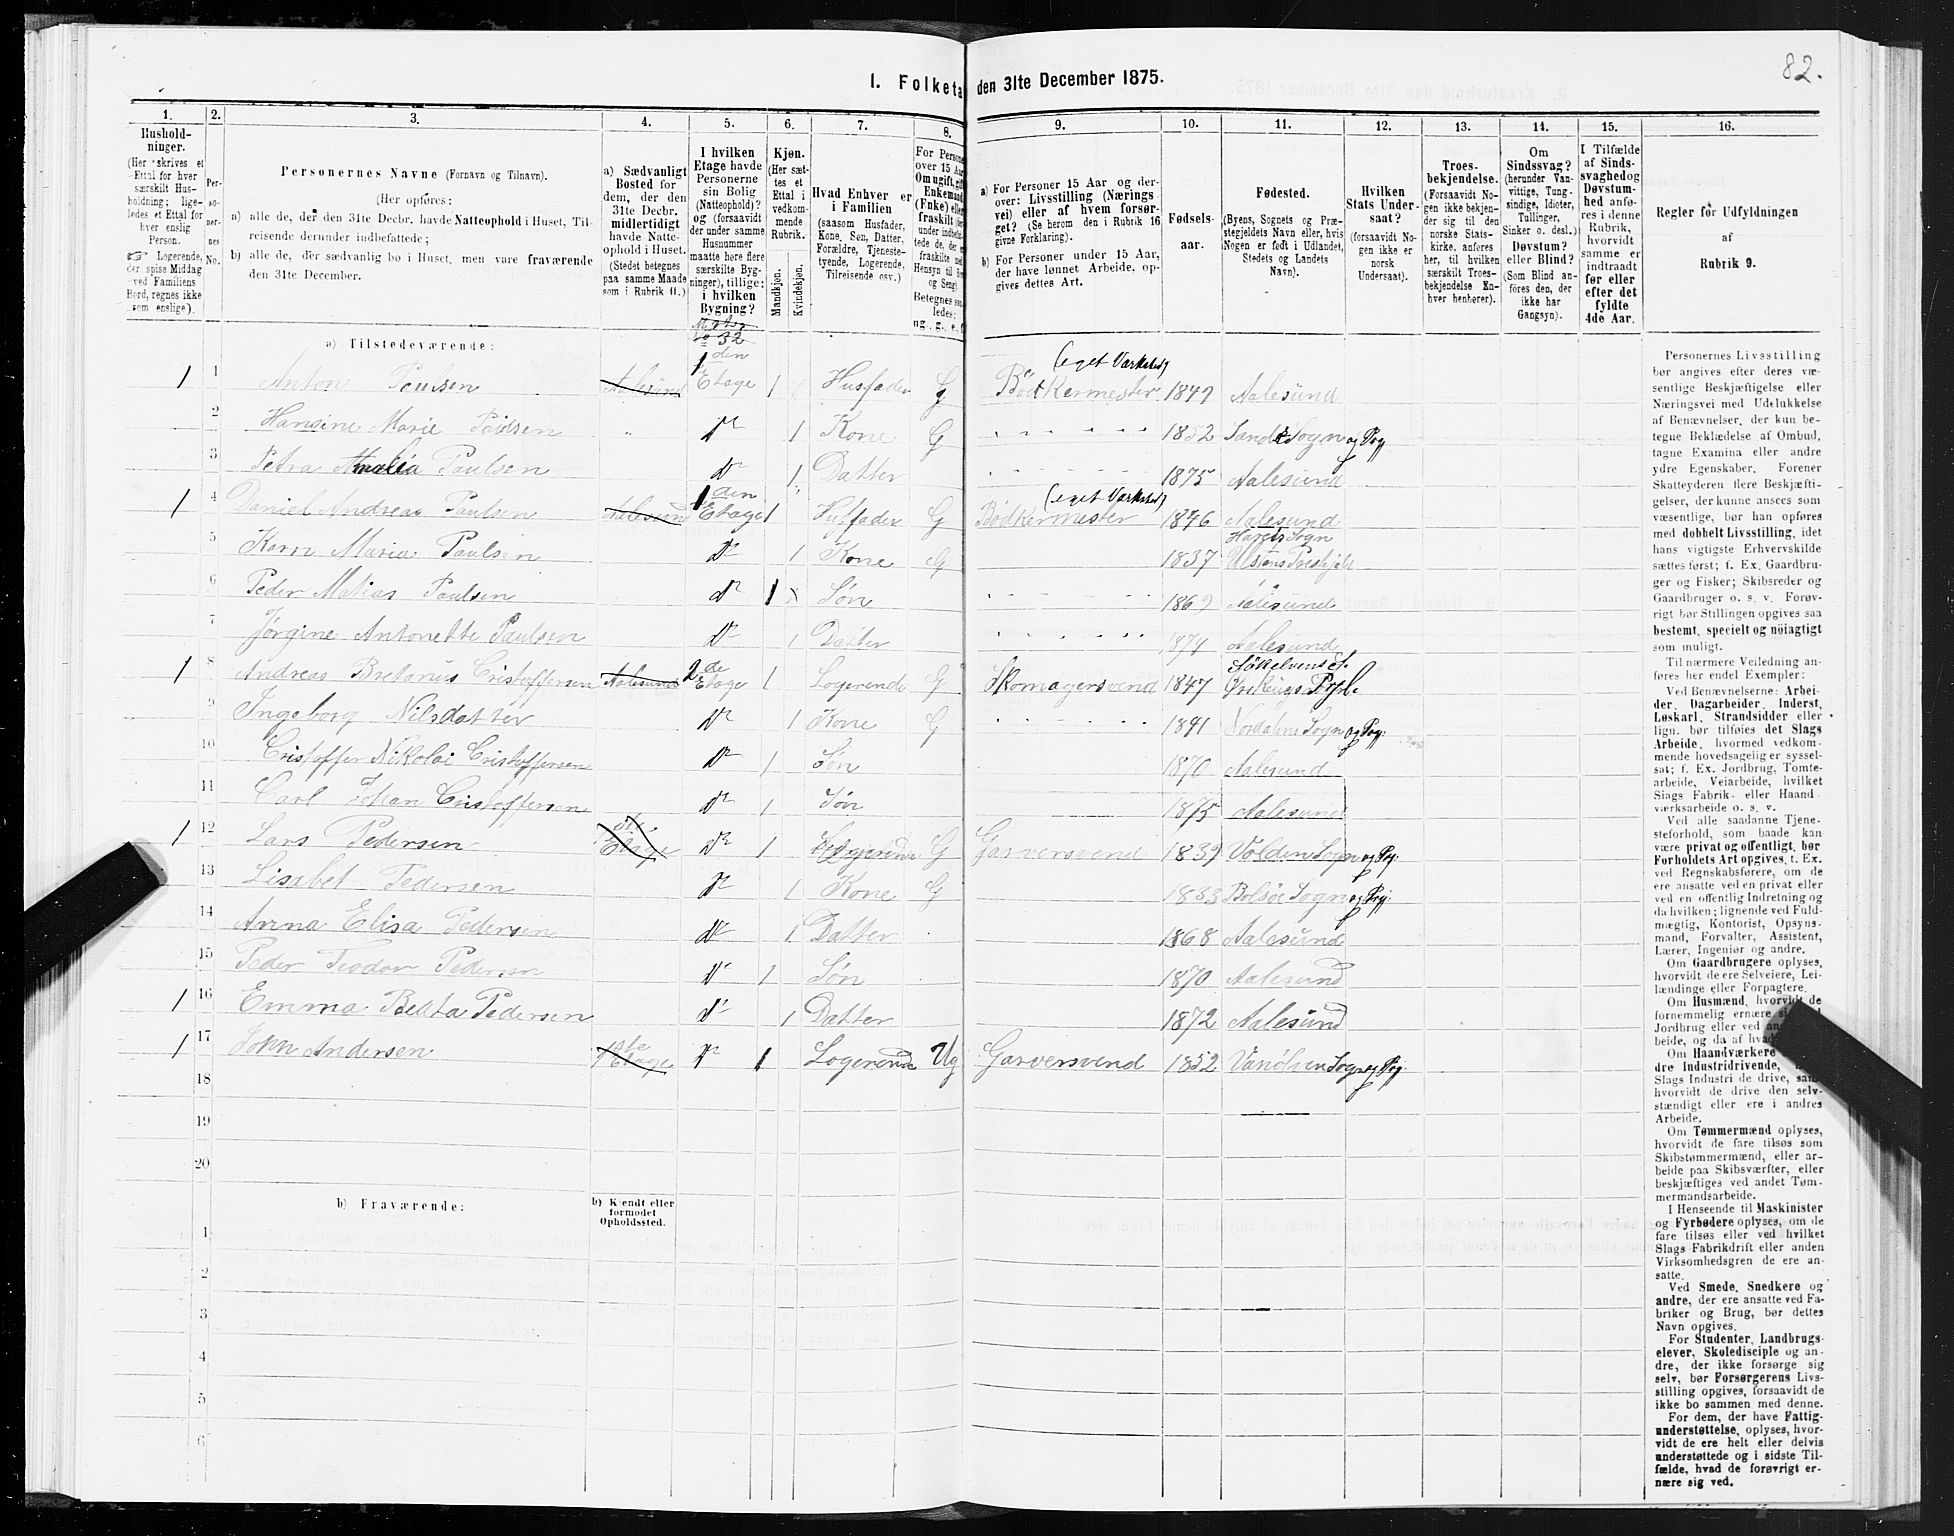 82.
I. Folketa den 31te December 1875.
1. 2. 3. 4. 5. 6. 7. 8. 9. 10. 11. 12. 13. 14. 15. 16.
Hushold-
ninger.
(Her skrives et
Ettal for hver
særskilt Hus-
holdning; lige-
ledes et Ettal for
hver enslig
Person.
☞ Logerende,
der spise Middag
ved Familiens
Bord, regnes ikke
som enslige).
Per-
so-
ner-
nes
No.
Personernes Navne (Fornavn og Tilnavn).
(Her opføres:
a) alle de, der den 31te Decbr. havde Natteophold i Huset, Til-
reisende derunder indbefattede;
b) alle de, der sædvanlig bo i Huset, men vare fraværende
den 31te December.
a) Sædvanligt
Bosted for
dem, der den
31te Decbr.
midlertidigt
havde Natte-
ophold i Huset.
(Stedet betegnes
paa samme Maade
som i Rubrik 11.)
I hvilken
Etage havde
Personerne
sin Bolig
(Natteophold)?
og (forsaavidt
der under samme
Husnummer
maatte høre flere
særskilte Byg-
ninger), tillige:
i hvilken
Bygning?
Kjøn.
(Her sæt-
tes et
Ettal i
vedkom-
mende
Rubrik.
Mandkjøn.
Kvindekjøn.
Hvad Enhver er
i Familien
(saasom Husfader,
Kone, Søn, Datter,
Forældre, Tjeneste-
tyende, Logerende,
Tilreisende osv.)
For Persone
over 15 Aar
Om ugift, gift
Enkemand
(Enke) elle
fraskilt
a) For Personer 15 Aar og der-
over: Livsstilling (Nærings
vei) eller af hvem forsør-
get? (Se herom den i Rubrik 16
givne Forklaring).
b) For Personer under 15 Aar,
der have lønnet Arbeide, op-
gives dettes Art.
Fødsels-
aar.
Fødested.
(Byens, Sognets og Præ-
stegjeldets Navn eller, hvis
Nogen er født i Udlandet,
Stedets og Landets
Navn).
Hvilken
Stats Under-
saat?
(forsaavidt No-
gen ikke er
norsk
Undersaat).
Troes-
bekjendelse.
(Forsaavidt No-
gen ikke bekjen-
der sig til den
norske Stats-
kirke, anføres
her, til hvilken
særskilt Troes-
bekjendelse En-
hver henhører).
Om
Sindssvag?
(herunder Van-
vittige, Tung-
sindige, Idioter,
Tullinger,
Sinker o. desl.)
Døvstum?
eller Blind?
(Som Blind an-
føres den, der
ikke har
Gangsyn).
I Tilfælde
af Sinds-
svaghed og
Døvstum-
hed anfø-
res i denne
Rubrik,
hvorvidt
samme er
indtraadt
før eller
efter det
fyldte
4de Aar.
Regler for Udfyldningen
af
Rubrik 9.
a) Tilstedeværende:
1 1 Anton Paulsen Aalesund 1 den Etage 1 Husfader G Bødkermester (eget Værksted) 1849 Aalesund
2 Hansine Marie Paulsen do 1 Kone G 1852 Sande Sogn og Pgj
3 Petra Amalia Paulsen do 1 Datter 1875 Aalesund
1 4 Daniel Andreas Paulsen Aalesund 1 den Etage 1 Husfader G Bødkermester (eget Værksted) 1846 Aalesund
5 Karn Maria Paulsen do 1 Kone G 1837 Hareids Sogn Ulstens Prestgjeld
6 Peder Matias Paulsen do 1 Søn 1869 Aalesund
7 Jørgine Antonette Paulsen do 1 Datter 1874 Aalesund
1 8 Andreas Bretanus Cristoffersen Aalesund 2 de Etage 1 Logerende G Skomagersvend 1847 Søkelvens S. Ørskougs Pgjl.
9 Ingeborg Nilsdatter do 1 Kone G 1841 Nordalens Sogn og Pgj.
10 Cristoffer Nikolai Cristoffersen do 1 Søn 1870 Aalesund
11 Carl Johan Cristoffersen do 1 Søn 1875 Aalesund
1 12 Lars Pedersen Etage do 1 Logerende G Garversvend 1839 Volden Sogn og Pgj.
13 Lisabet Pedersen do 1 Kone G 1833 Bolsøe Sogn og Pgj.
14 Anna Elisa Pedersen do 1 Datter 1868 Aalesund
15 Peder Teodor Pedersen do 1 Søn 1870 Aalesund
1 16 Emma Beata Pedersen do 1 Datter 1872 Aalesund
1 17 John Andersen 1ste Etage do 1 Logerende Ug Garversvend 1852 Vanølsen Sogn og Pgj.
18
19
20
b) Fraværende:
b) Kjendt eller
formodet
Opholdssted.
1
2
3
4
5
6
Personernes Livsstilling
bør angives efter deres væ-
sentlige Beskjæftigelse eller
Næringsvei med Udelukkelse
af Benævnelser, der kun be-
tegne Beklædelse af Ombud,
tagne Examina eller andre
ydre Egenskaber. Forener
Skatteyderen flere Beskjæfti-
gelser, der kunne ansees som
væsentlige, bør han opføres
med dobbelt Livsstilling, idet
hans vigtigste Erhvervskilde
sættes først; f. Ex. Gaardbru-
ger og Fisker; Skibsreder og
Gaardbruger o. s. v. Forøv-
rigt bør Stillingen opgives saa
bestemt, specielt og nøiagtigt
som muligt.
Til nærmere Veiledning an-
føres her endel Exempler:
Ved Benævnelserne: Arbei-
der, Dagarbeider, Inderst,
Løskarl, Strandsidder eller
lign. bør tilføies det Slags
Arbeide, hvormed vedkom-
mende hovedsagelig er syssel-
sat; f. Ex. Jordbrug, Tomte-
arbeide, Veiarbeide, hvilket
Slags Fabrik- eller Haand-
værksarbeide o. s. v.
Ved alle saadanne Tjene-
steforhold, som baade kan
være privat og offentligt, bør
Forholdets Art opgives, t. Ex.
ved Regnskabsførere, om de
ere ansatte ved en privat eller
ved en offentlig Indretning og
da hvilken; lignende ved Fuld-
mægtig, Kontorist, Opsyns-
mand, Forvalter, Assistent,
Lærer, Ingeniør og andre.
Om Gaardbrugere oplyses,
hvorvidt de ere Selveiere, Lei-
lændinge eller Forpagtere.
Om Husmænd, hvorvidt de
fornemmelig ernære si
Jordbrug eller ved an
beide, og da af hva
Om Haandværkere
dre Industridrivende,
Slags Industri de drive, sam
hvorvidt de drive den selv-
stændigt eller ere i andres
Arbeide.
Om Tømmermænd oplyses,
hvorvidt de fare tilsøs som
Skibstømmermænd, eller ar-
beide paa Skibsværfter, eller
beskjæftiges ved andet Tøm-
mermandsarbeide.
I Henseende til Maskinister
og Fyrbødere oplyses, om de
fare tilsøs eller ved hvilket
Slags Fabrikdrift eller anden
Virksomhedsgren de ere an-
satte.
Ved Smede, Snedkere og
andre, der ere ansatte ved Fa-
briker og Brug, bør dettes
Navn opgives.
For Studenter, Landbrugs-
elever, Skoledisciple og an-
dre, der ikke forsørge sig
selv, bør Forsørgerens Livs-
stilling opgives, forsaavidt de
ikke bo sammen med denne.
For dem, der have Fattig-
understøttelse, oplyses, hvor-
vidt de ere helt eller delvis
understøttede og i sidste Til-
fælde, hvad de forøvrigt er-
nære sig ved.